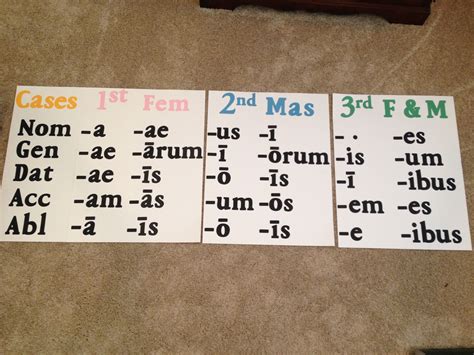 Cases 1st Fem 2nd Mas 3rd F & M
Nom -a -ae -us -ī -· -es
Gen -ae -ārum -ī -ōrum -is -um
Dat -ae -īs -ō -īs -ī -ibus
Acc -am -ās -um -ōs -em -es
Abl -ā -īs -ō -īs -e -ibus